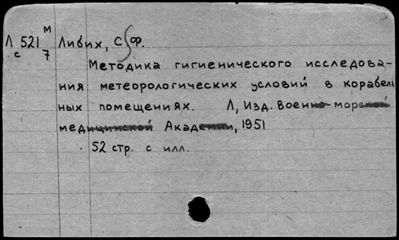 Л 521 м Либих, С.Ф.
с 7
Методика гигиенического исследова-
ния метеорологических условий в корабель
ных помещениях. Л, Изд. Военно-морской
медицинской Академии, 1951
52 стр. с илл.